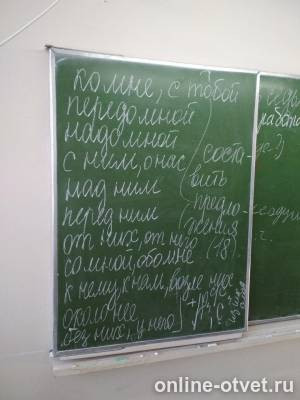 комне, с тобой
передомной
надомной
с ним, о нас
над ним
перед ним
от них, от него
со мной, обо мне
к нему, к нам, возле нее
около нее,
без них, у него
соста-
вить
предло-
жения
(18).
online-otvet.ru